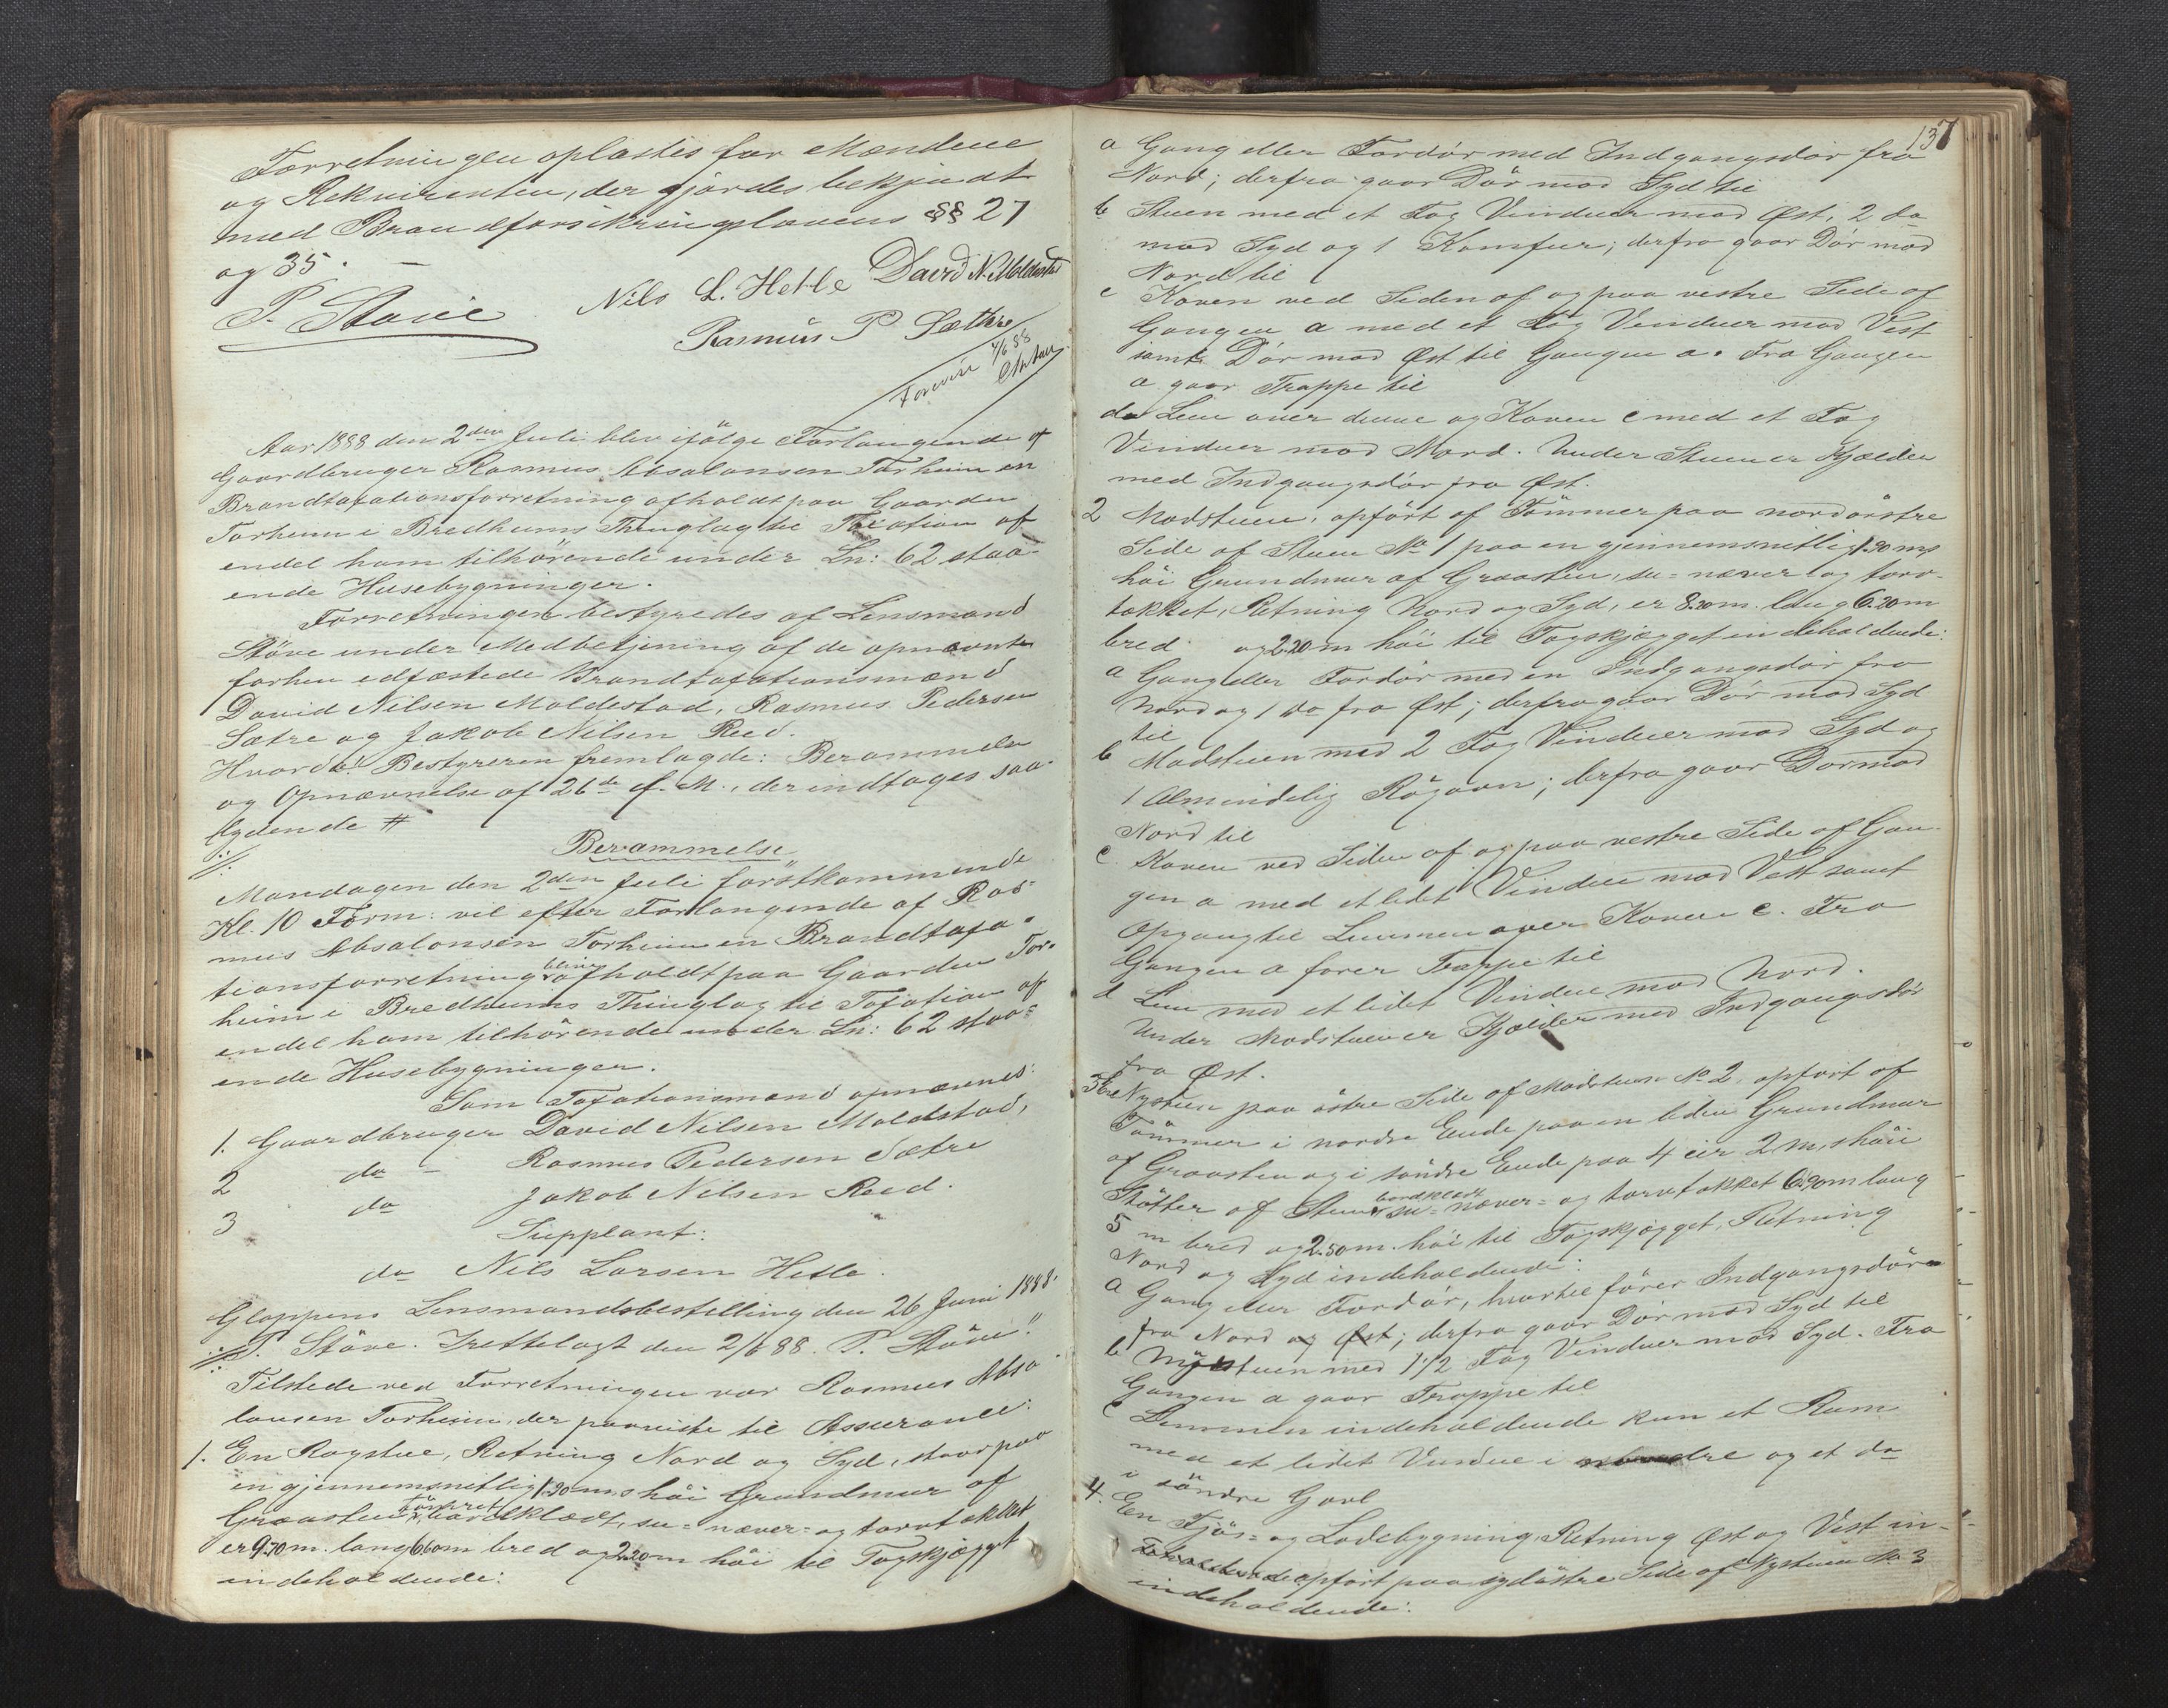 Forretningen oplæstes for Mændene
og Rekvirenten, der gjordes bekjendt
med Brandforsikringslovens §§ 27
og 35. –
P. Støve Nils L. Hetle David N. Moldestad
Rasmus P Sætre
Aar 1888 den 2den Juli blev ifølge Forlangende af
Gaardbruger Rasmus Absalonsen Torheim en
Brandtaxationsforretning afholdt paa Gaarden
Torheim i Bredheims Thinglag til Taxation af
endel ham tilhörende under Ln: 62 staa-
ende Husebygninger.
Forretningen bestyredes af Lensmand
Støve under Medbetjening af de opnævnte
forhen edfæstede Brandtaxationsmænd
David Nilsen Moldestad, Rasmus Pedersen
Sætre og Jakob Nilsen Reed.
Hvorda! Bestyreren fremlagde: Berammelse
og Opnævnelse af 26de f. M., der indtages saa-
lydende #
://:
Berammelse
Mandagen den 2den Juli förstkommende
Kl. 10 Form: vil efter Forlangende af Ras-
mus Absalonsen Torheim en Brandtaxa-
tionsforretning blive afholdt paa Gaarden Tor-
heim i Bredheims Thinglag til Taxation af
endel ham tilhörende under Ln: 62 staa-
ende Husebygninger.
Som Taxationsmænd opnævnes:
1. Gaardbruger David Nilsen Moldestad,
2 do – Rasmus Pedersen Sætre
3 do Jakob Nilsen Reed.
Supplant:
do Nils Larsen Hetle.
Gloppens Lensmandsbestilling den 26 Juni 1888.
://: P. Støve. Irettelagt den 2/6 88. P. Støve."
Tilstede ved Forretningen var Rasmus Absa-
lonsen Torheim, der paaviste til Assurance:
1. En Røgstue, Retning Nord og Syd, staar paa
en gjennemsnitlig 1.30 m's höi Grundmur af
Graasten, tömret, bordklædt, su- næver- og torvtækket
er 9.70 m. lang 6.60 m bred og 2.20 m höi til Tagskjægget
indeholdende:
137
a Gang eller Fordör med Indgangsdör fra
Nord; derfra gaar Dör mod Syd til
b Stuen med et Fag Vinduer mod Øst, 2 do
mod Syd og 1 Komfur; derfra gaar Dör mod
Nord til
c Koven ved Siden af og paa vestre Side af
Gangen a med et Fag Vinduer mod Vest
samt Dör mod Øst til Gangen a. Fra Gangen
a gaar Trappe til
d Lem over denne og Koven c med et Fag
Vinduer mod Nord. Under Stuen er Kjælder
med Indgangsdör fra Øst.
2 Madstuen, opfört af Tömmer paa nordöstre
Side af Stuen No 1 paa en gjennemsnitlig 1.90 ms
höi Grundmur af Graasten, su- næver og torv-
tækket, Retning Nord og Syd, er 8.20 m. lang 6.20 m
bred og 2.20 m höi til Tagskjægget indeholdende:
a Gang eller Fordör med en Indgangsdör fra
Nord og 1 do fra Øst; derfra gaar Dör mod Syd
til
b Madstuen med 2 Fag Vinduer mod Syd og
1 Almindelig Rögovn; derfra gaar Dör mod
Nord til
c. Koven ved Siden af og paa vestre Side af Gan-
gen a med et lidet Vindue mod Vest samt
Opgang til Lemmen over Koven c. Fra
Gangen a förer Trappe til
d Lem med et lidet Vindue mod Nord.
Under Madstuen er Kjælder med Indgangsdör
fra Øst.
3 Nystuen paa östre Side af Madstuen No 2, opfört af
Tömmer i nordre Ende paa en liden Grundmur
af Graasten og i söndre Ende paa 4 cir 2 m, s höie
Stötter af Sten, bordklædt su- næver- og torvtækket 6.90 m lang
5 m bred og 2.50 m. höi til Tagskjægget, Retning
Nord og Syd indeholdende:
a Gang eller Fordör, hvortil förer Indgangsdör
fra Nord og Øst; derfra gaar Dör mod Syd til
b Nystuen med 1 1/2 Fag Vinduer mod Syd. Fra
Gangen a gaar Trappe til
c Lemmen indeholdende kun et Rum
med et lidet Vindue i nordre og et do
i söndre Gavl
4. En Fjös- og Ladebygning, Retning Øst og Vest in-
opfört paa sydöstre Side af Nystuen No 3
indeholdende: